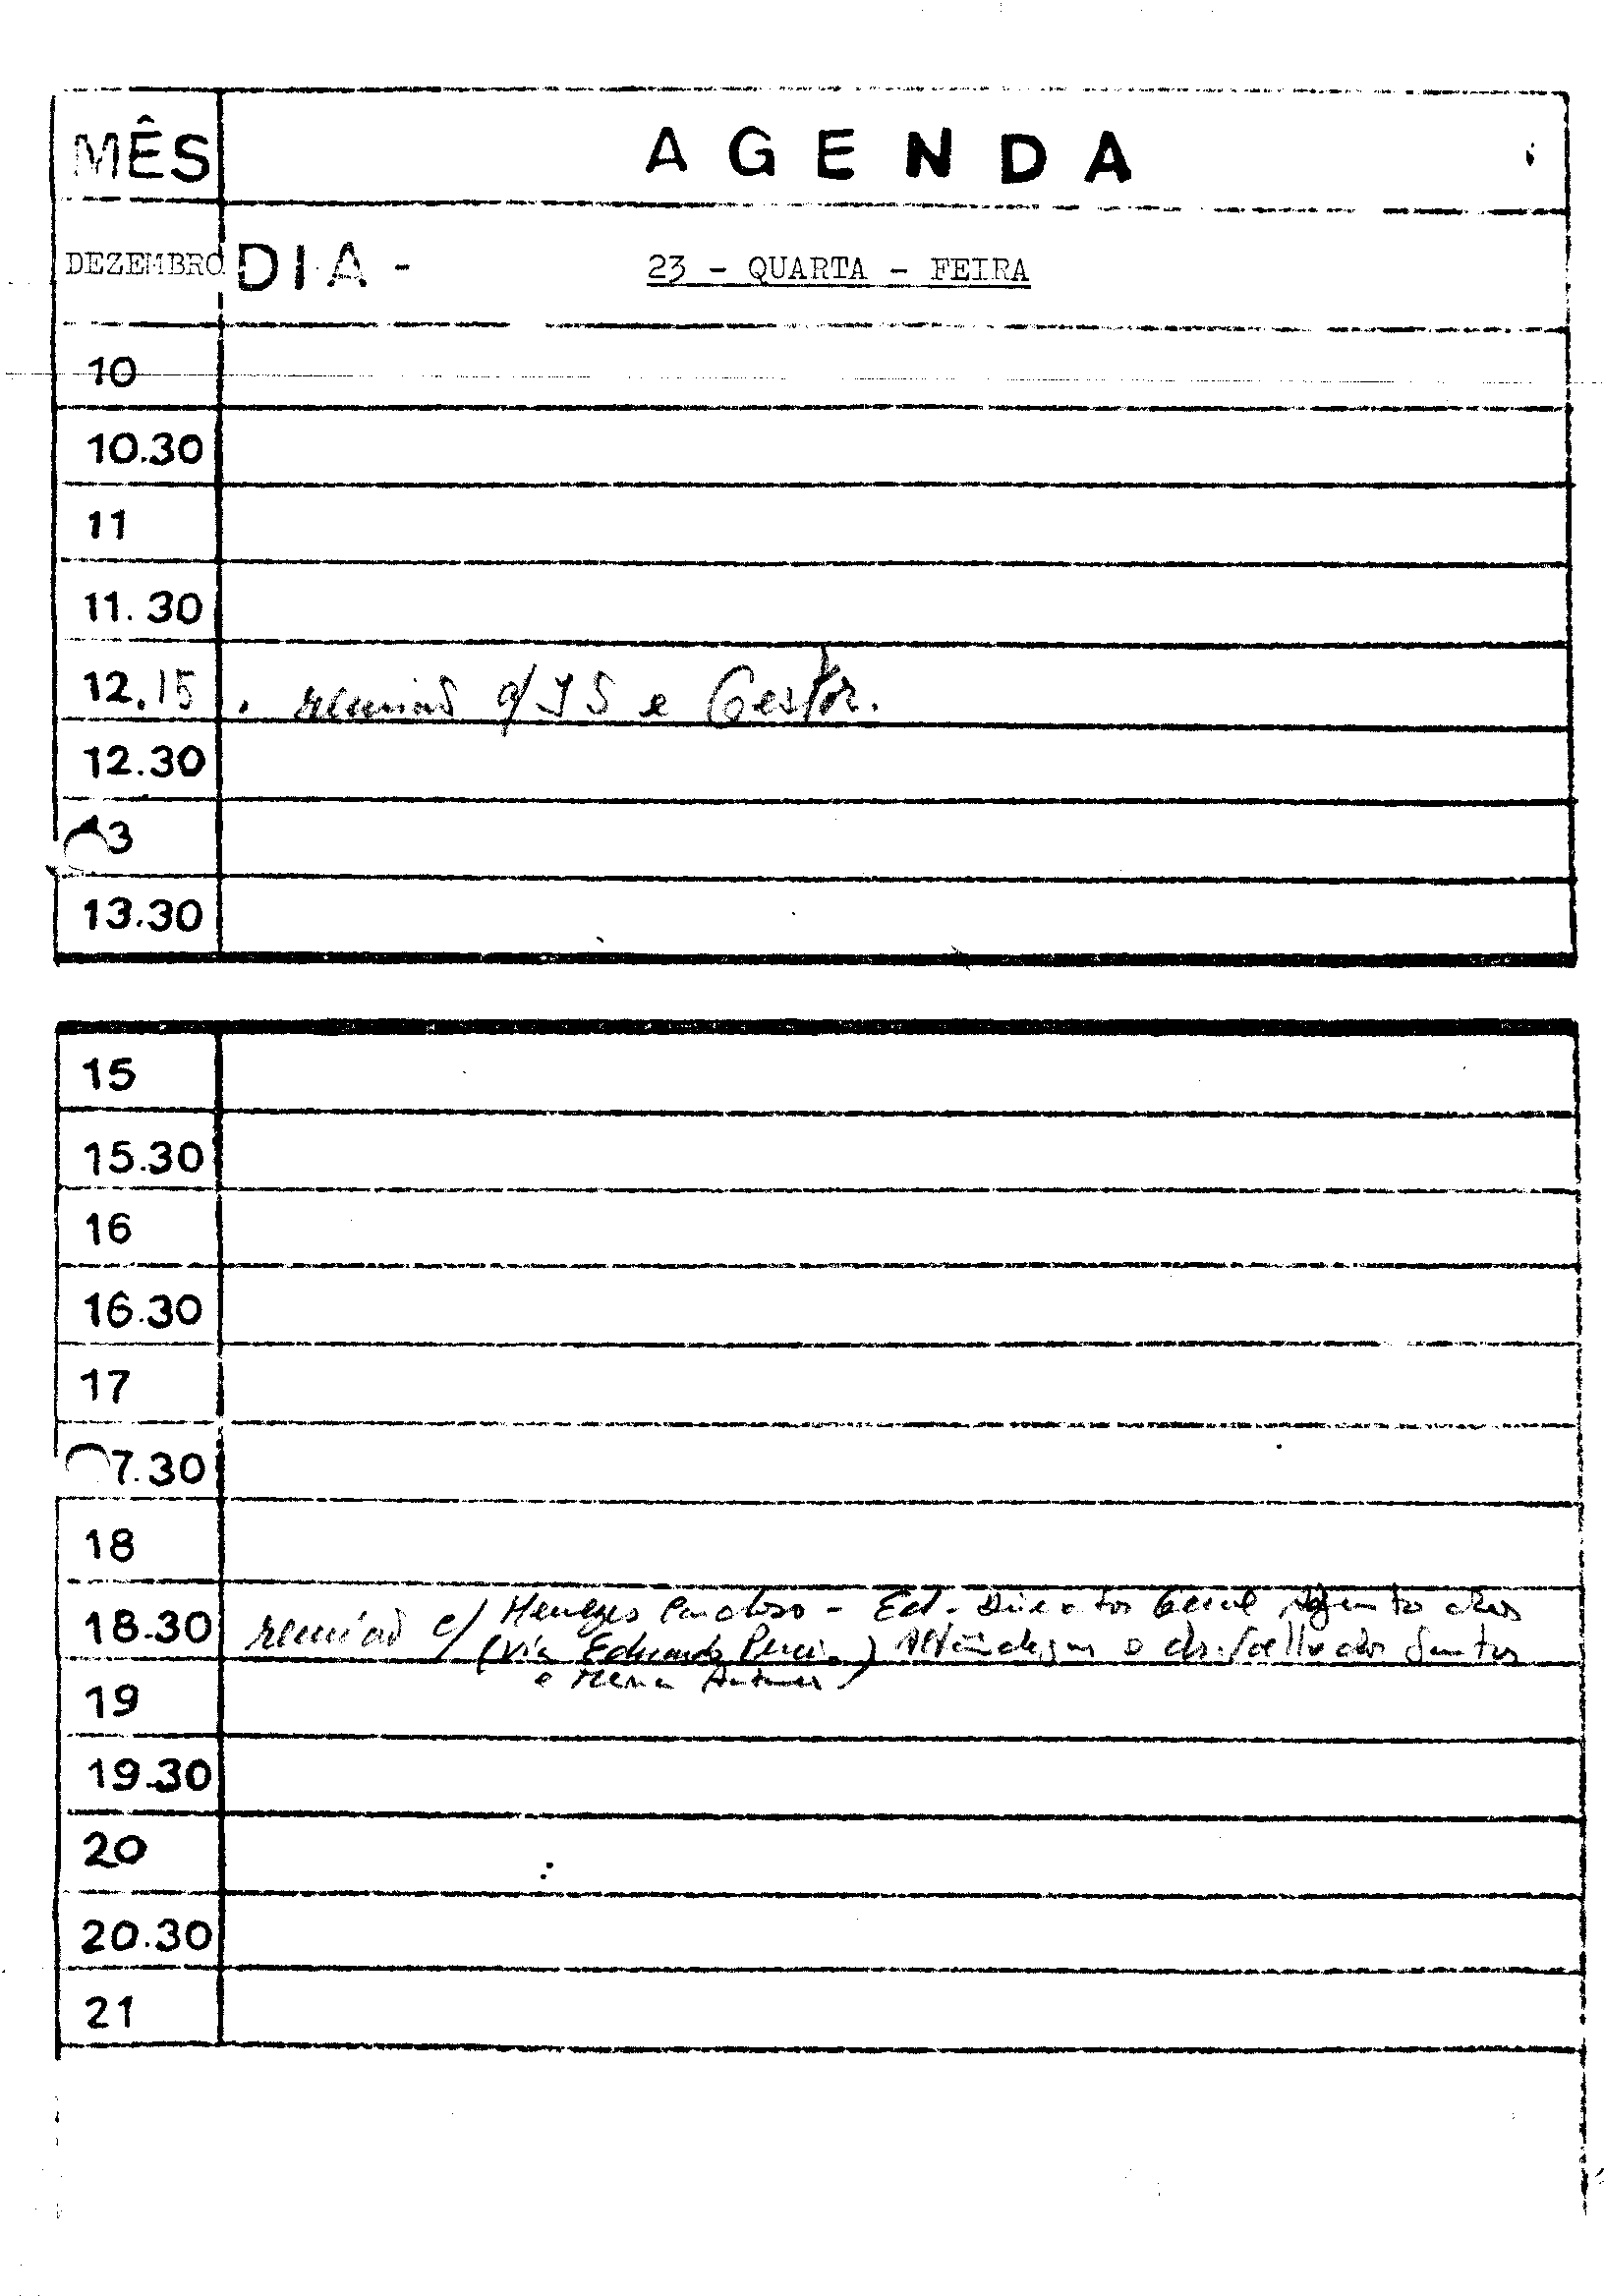 MÊS
AGENDA
DEZEMBRO
DIA - 23 - QUARTA - FEIRA
10
10.30
11
11.30
12.15 . reunião c/ IS e Gestor.
12.30
3
13.30
15
15.30
16
16.30
17
7.30
18
18.30 reunião c/ Menezes Cardoso - Director Geral Adjunto das
(via Eduardo ) Alfândegas e dr. Santos
e Antunes)
19
19.30
20
20.30
21